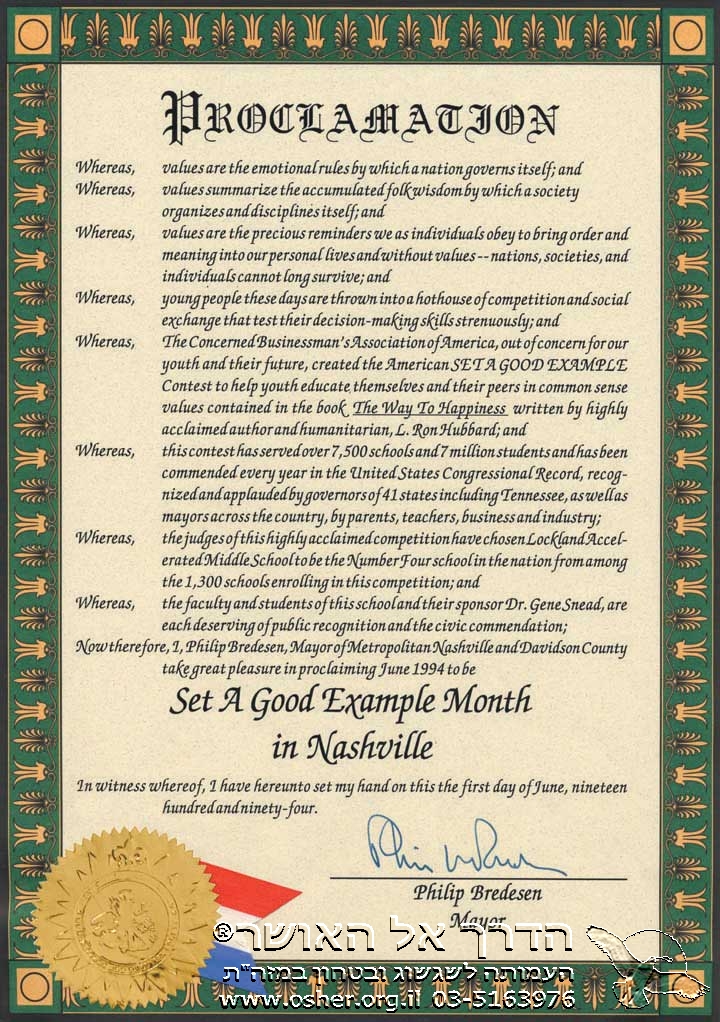 PROCLAMATION
Whereas, values are the emotional rules by which a nation governs itself; and
Whereas, values summarize the accumulated folk wisdom by which a society
organizes and disciplines itself; and
Whereas, values are the precious reminders we as individuals obey to bring order and
meaning into our personal lives and without values -- nations, societies, and
individuals cannot long survive; and
Whereas, young people these days are thrown into a hothouse of competition and social
exchange that test their decision-making skills strenuously; and
Whereas, The Concerned Businessman's Association of America, out of concern for our
youth and their future, created the American SET A GOOD EXAMPLE
Contest to help youth educate themselves and their peers in common sense
values contained in the book The Way To Happiness written by highly
acclaimed author and humanitarian, L. Ron Hubbard; and
Whereas, this contest has served over 7,500 schools and 7 million students and has been
commended every year in the United States Congressional Record, recog-
nized and applauded by governors of 41 states including Tennessee, as well as
mayors across the country, by parents, teachers, business and industry;
Whereas, the judges of this highly acclaimed competition have chosen Lockland Accel-
erated Middle School to be the Number Four school in the nation from among
the 1,300 schools enrolling in this competition; and
Whereas, the faculty and students of this school and their sponsor Dr. Gene Snead, are
each deserving of public recognition and the civic commendation;
Now therefore, I, Philip Bredesen, Mayor of Metropolitan Nashville and Davidson County
take great pleasure in proclaiming June 1994 to be
Set A Good Example Month
in Nashville
In witness whereof, I have hereunto set my hand on this the first day of June, nineteen
hundred and ninety-four.
Philip Bredesen
Mayor
הדרך אל האושר®
העמותה לשגשוג ובטחון במזה"ת
www.osher.org.il 03-5163976